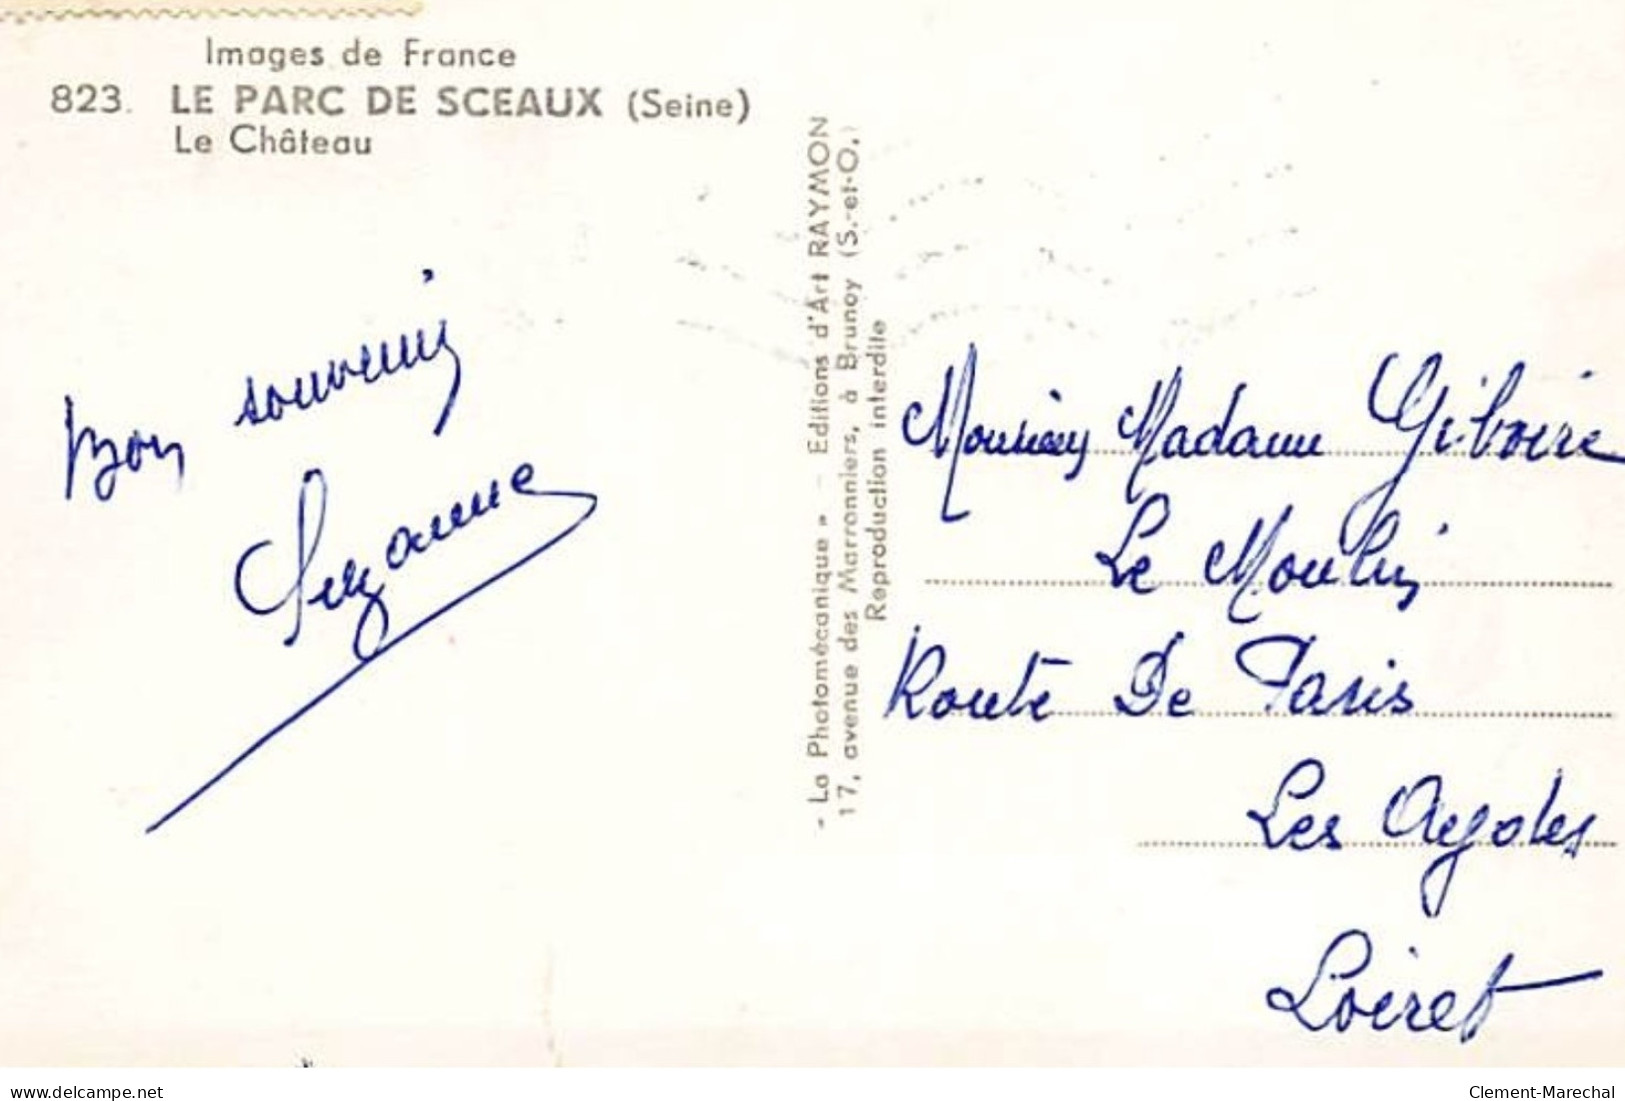 Images de France
823. LE PARC DE SCEAUX (Seine)
Le Château
Bon souvenir
Suzanne
« La Photomécanique » - Editions d'Art RAYMON
17, avenue des Marronniers, à Brunoy (S.-et-O.)
Reproduction interdite
Monsieur Madame Giboire
Le Moulin
Route De Paris
Les
Loiret
delcampe.net
Clement-Marechal